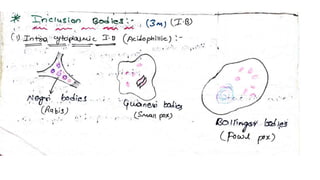 * Inclusion Bodies:- (3m) (I.B)
(i) Intra cytoplasmic I.B (Acidophilic):-
Negri bodies
(Rabis)
Guarneri bodies
(Small pox)
Bollinger bodies
(Fowl pox)